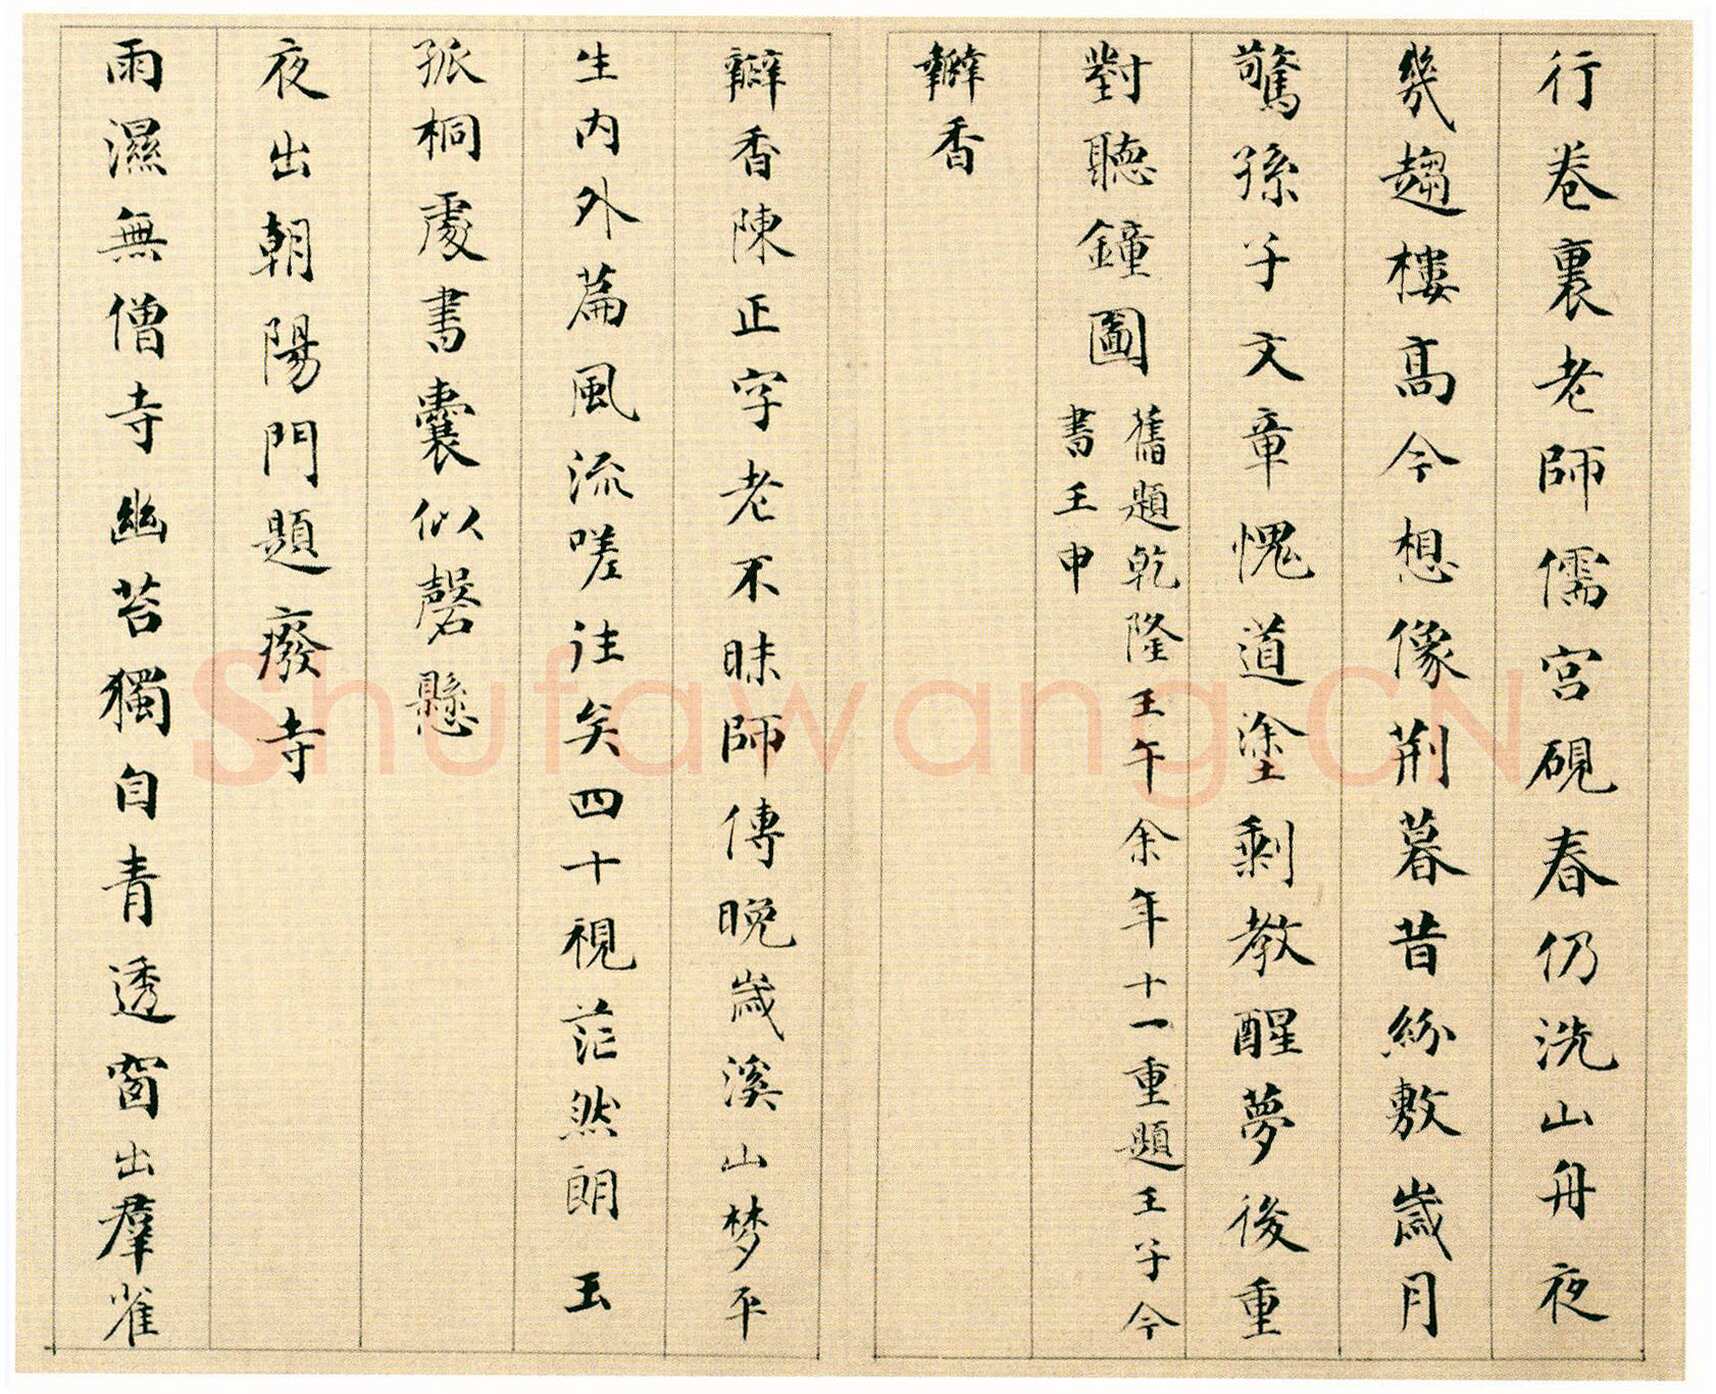 行卷裏老師儒宮硯春仍洗山舟夜
幾趨樓高今想像荆暮昔紛敷歲月
驚孫子文章愧道塗剩教醒夢後重
對聽鐘圖
舊題乾隆壬午余年十一重題壬子今
書壬申
瓣香
瓣香陳正字老不昧師傳晚歲溪山梦平
生内外篇風流嗟往矣四十視茫然朗玉
孤桐處書囊似磬懸
夜出朝陽門題廢寺
雨濕無僧寺幽苔獨自青透窗出羣雀
Shufawang.CN